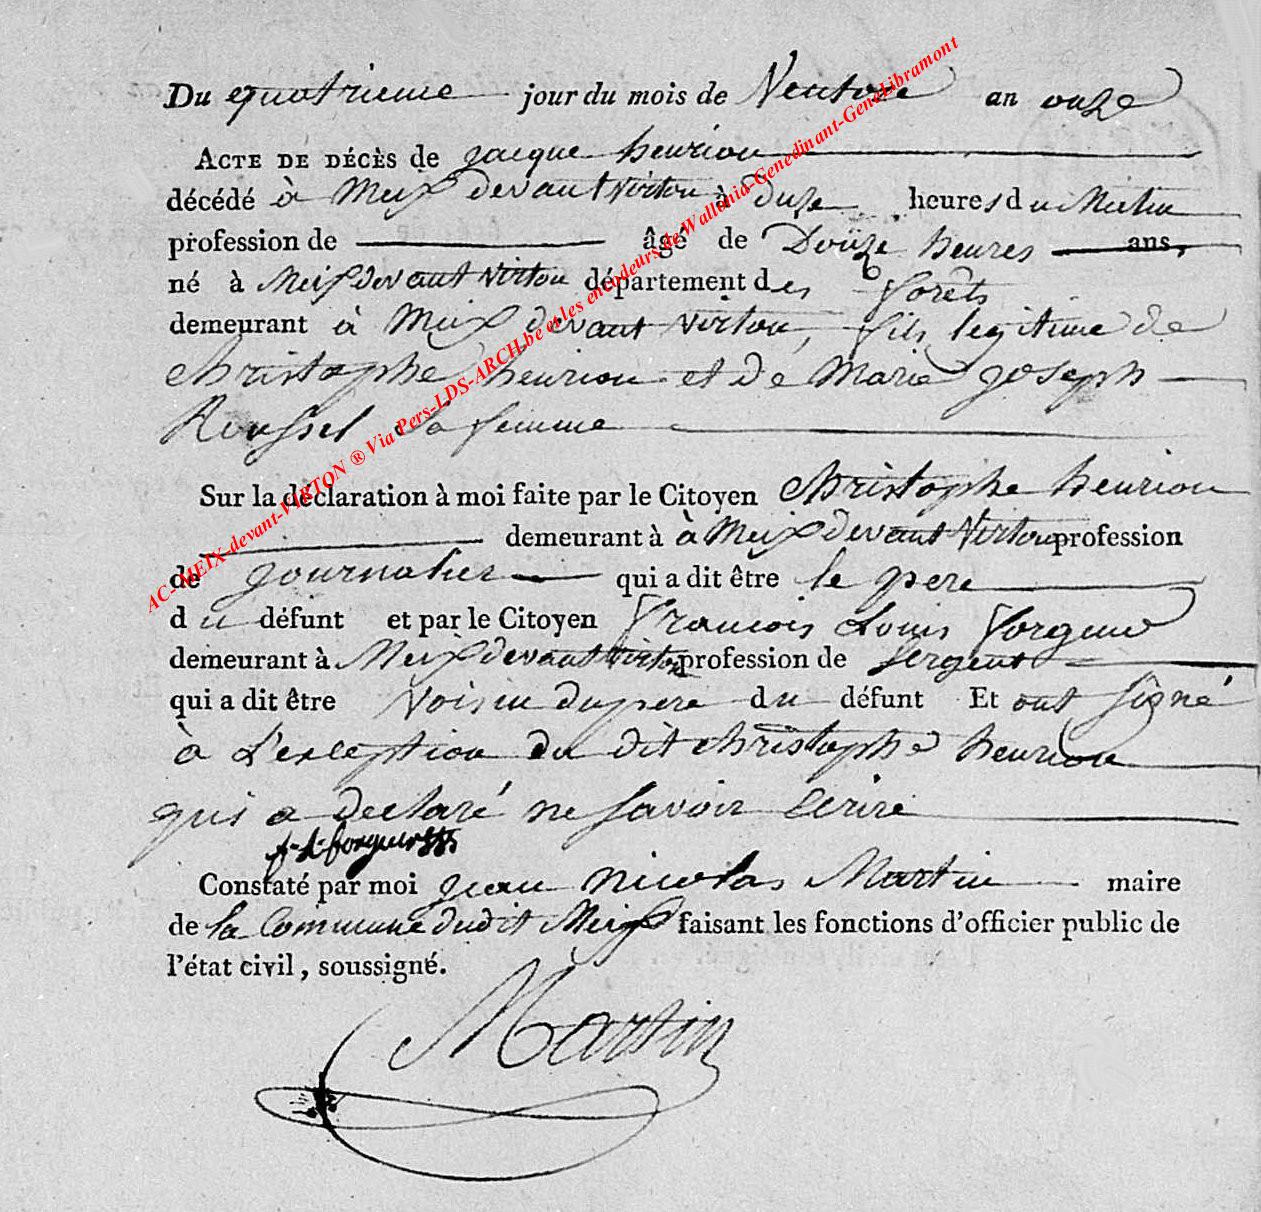 Du quatrieme jour du mois de Ventose an onze
ACTE DE DÉCÈS de jacque henrion
décédé à Meix devant Virton à onze heures du Matin
profession de âgé de Douze heures ans,
né à Meix devant Virton département des forêts
demeurant à Meix devant Virton, fils legitime de
christophe henrion et de Marie joseph
Roussel sa femme
Sur la déclaration à moi faite par le Citoyen christophe henrion
demeurant à à Meix devant Virton profession
de journalier qui a dit être le pere
du défunt et par le Citoyen francois Louis
demeurant à Meix devant Virton profession de sergent
qui a dit être Voisin du pere du défunt Et ont signé
à L'exception du dit christophe henrion
qui a declaré ne savoir Ecrire
Constaté par moi jean nicolas Martin maire
de la Commune dudit Meix faisant les fonctions d'officier public de
l'état civil, soussigné.
Martin
AC-MEIX-devant-VIRTON ® Via Pers-LDS-ARCH.be et les encodeurs de Wallonia-Genedinant-GeneLibramont